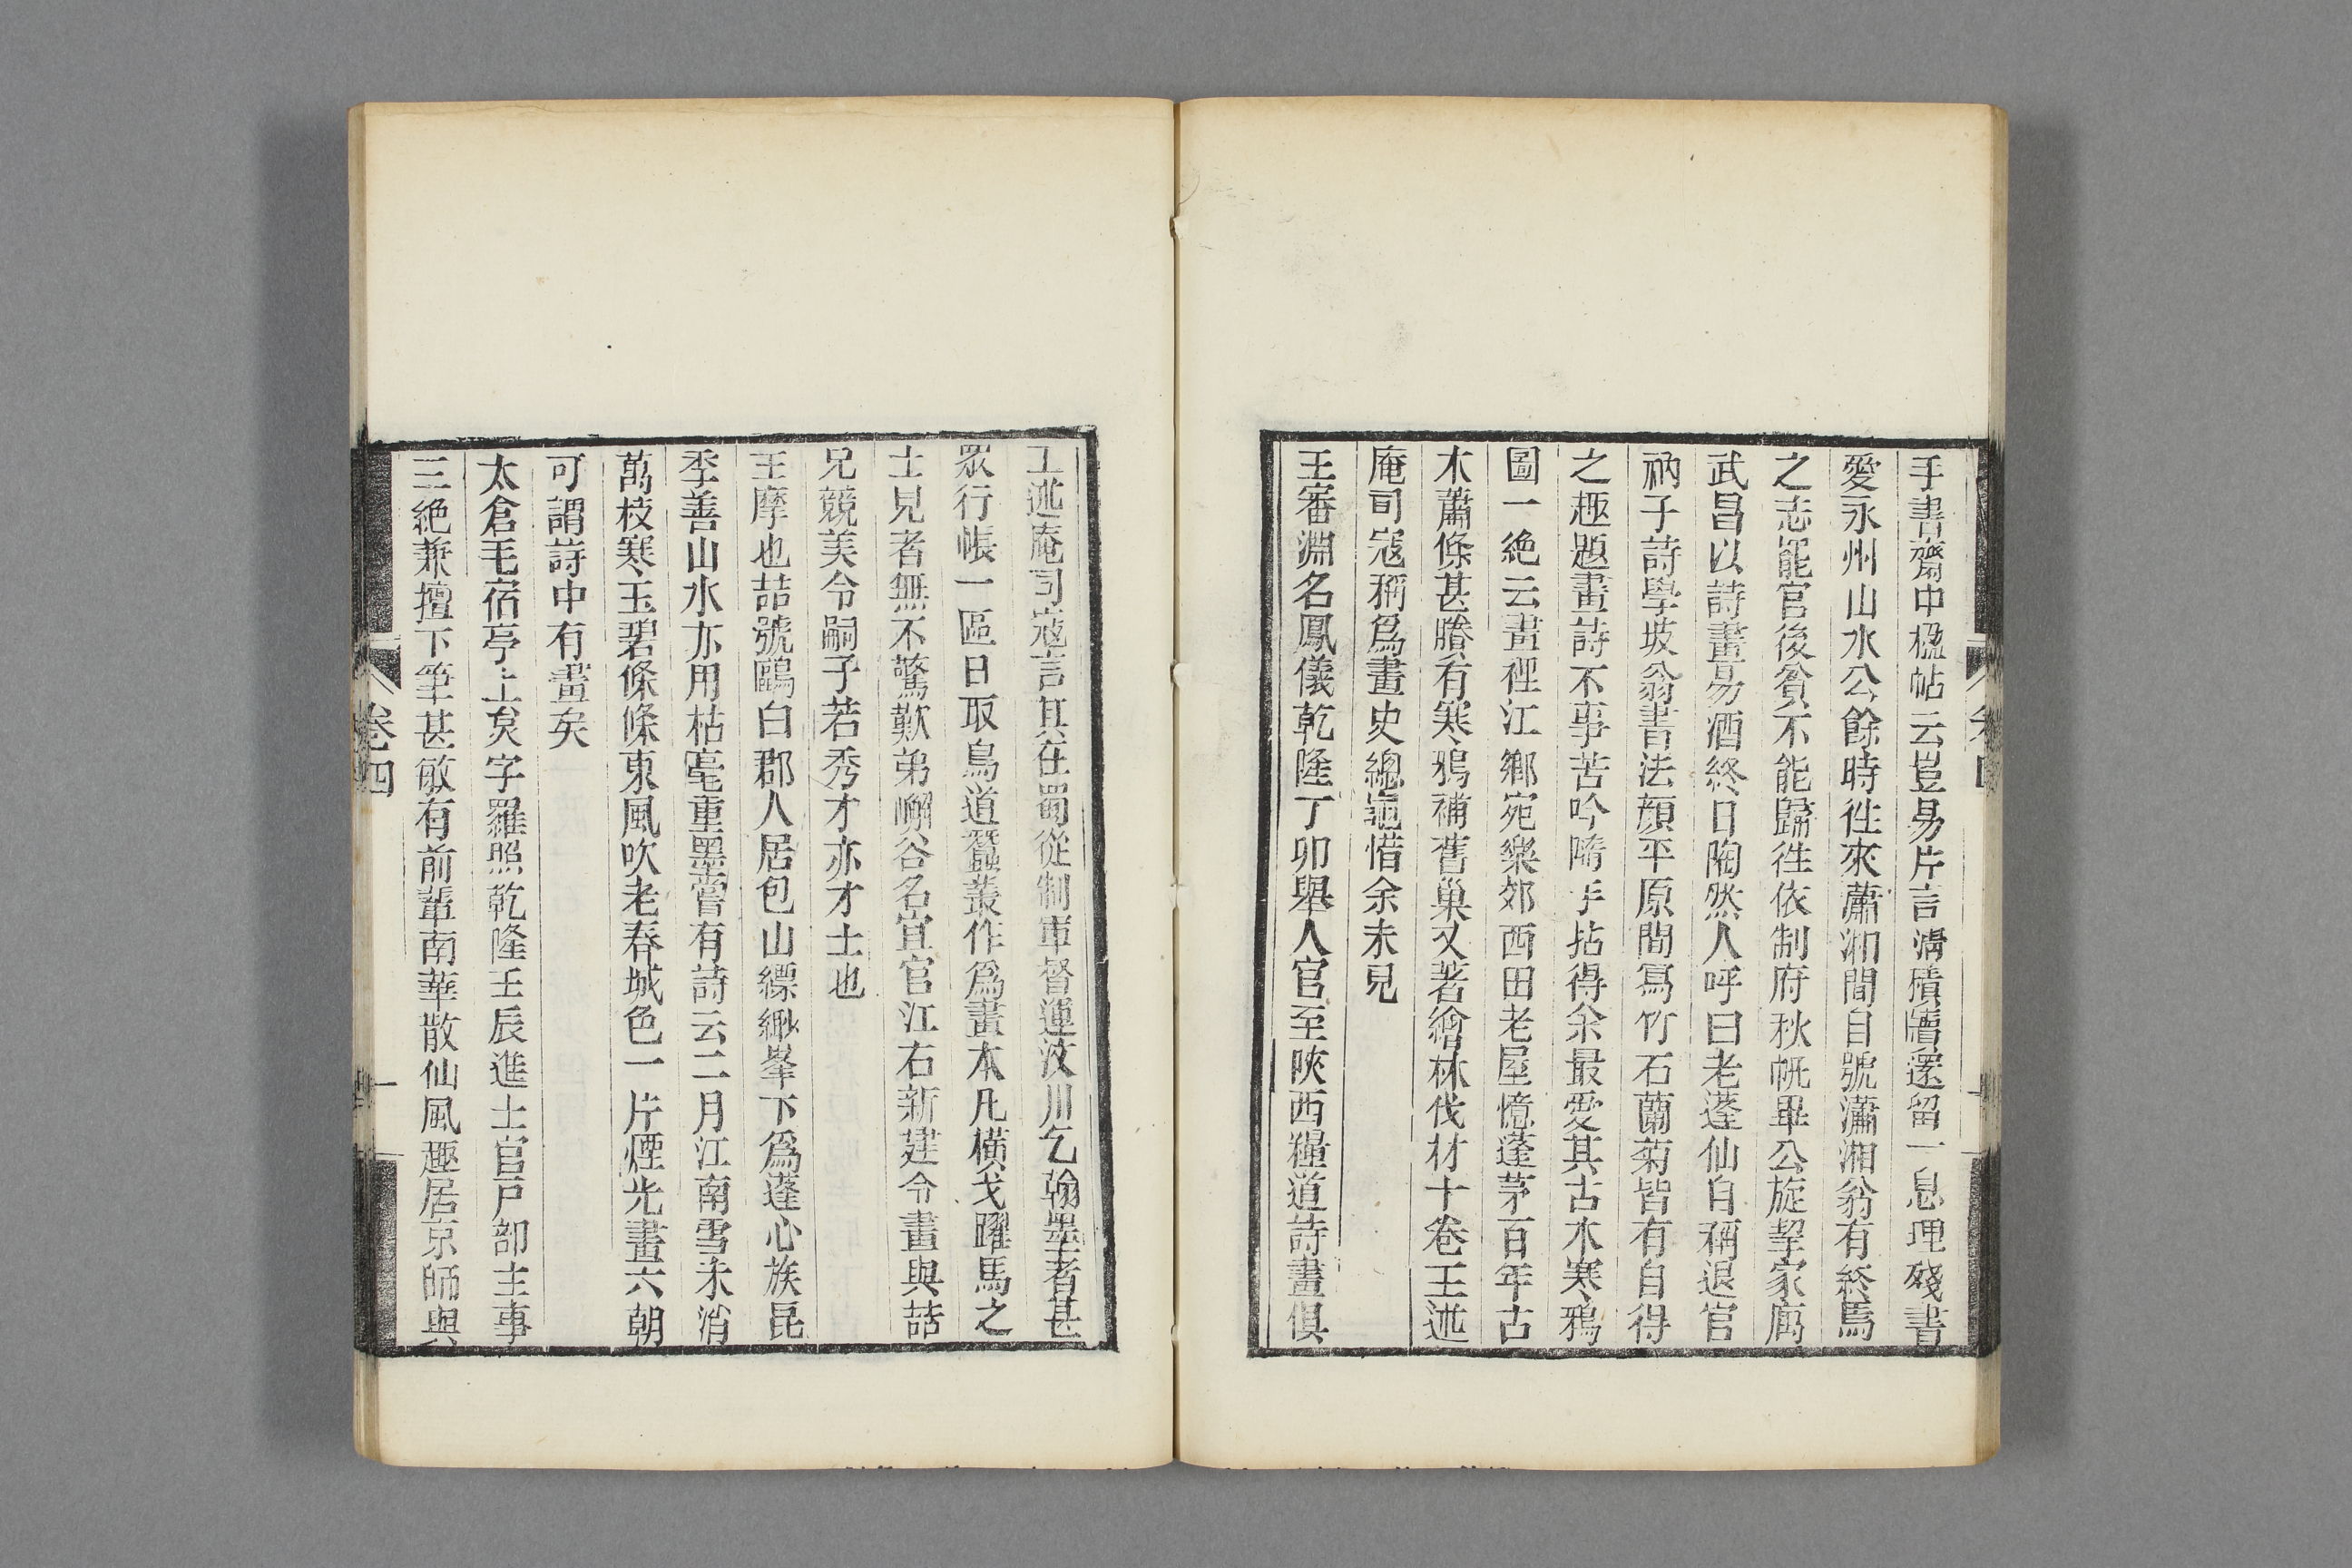 手書齋中楹帖云豈易片言淸積牘還留一息理殘書
愛永州山水公餘時徃來蕭湘間自號瀟湘翁有終焉
之志罷官後貧不能歸徃依制府秋帆畢公旋挈家寓
武昌以詩畫易酒終日陶然人呼曰老蓬仙自稱退官
衲子詩學坡翁書法顔平原間寫竹石蘭菊皆有自得
之趣題畫詩不事苦吟隨手拈得余最愛其古木寒鴉
圖一絶云畫裡江鄉宛樂郊西田老屋憶蓬茅百年古
木蕭條甚賸有寒鴉補舊巢又著繪林伐材十卷王述
庵司寇稱爲畫史總龜惜余未見
王審淵名鳳儀乾隆丁卯舉人官至陜西糧道詩畫俱
工述庵司寇言其在蜀從制軍督運汶川乞翰墨者甚
眾行帳一區日取鳥道蠶叢作爲畫本凡橫戈躍馬之
士見者無不驚歎弟嶰谷名宜官江右新建令畫與喆
兄競美令嗣子若秀才亦才士也
王摩也喆號鷗白郡人居包山縹緲峯下爲蓬心族昆
季善山水亦用枯毫重墨嘗有詩云二月江南雪未消
萬枝寒玉碧條條東風吹老春城色一片煙光畫六朝
可謂詩中有畫矣
太倉毛宿亭上炱字羅照乾隆壬辰進士官戸部主事
三絶兼擅下筆甚敏有前輩南華散仙風趣居京師與
卷四